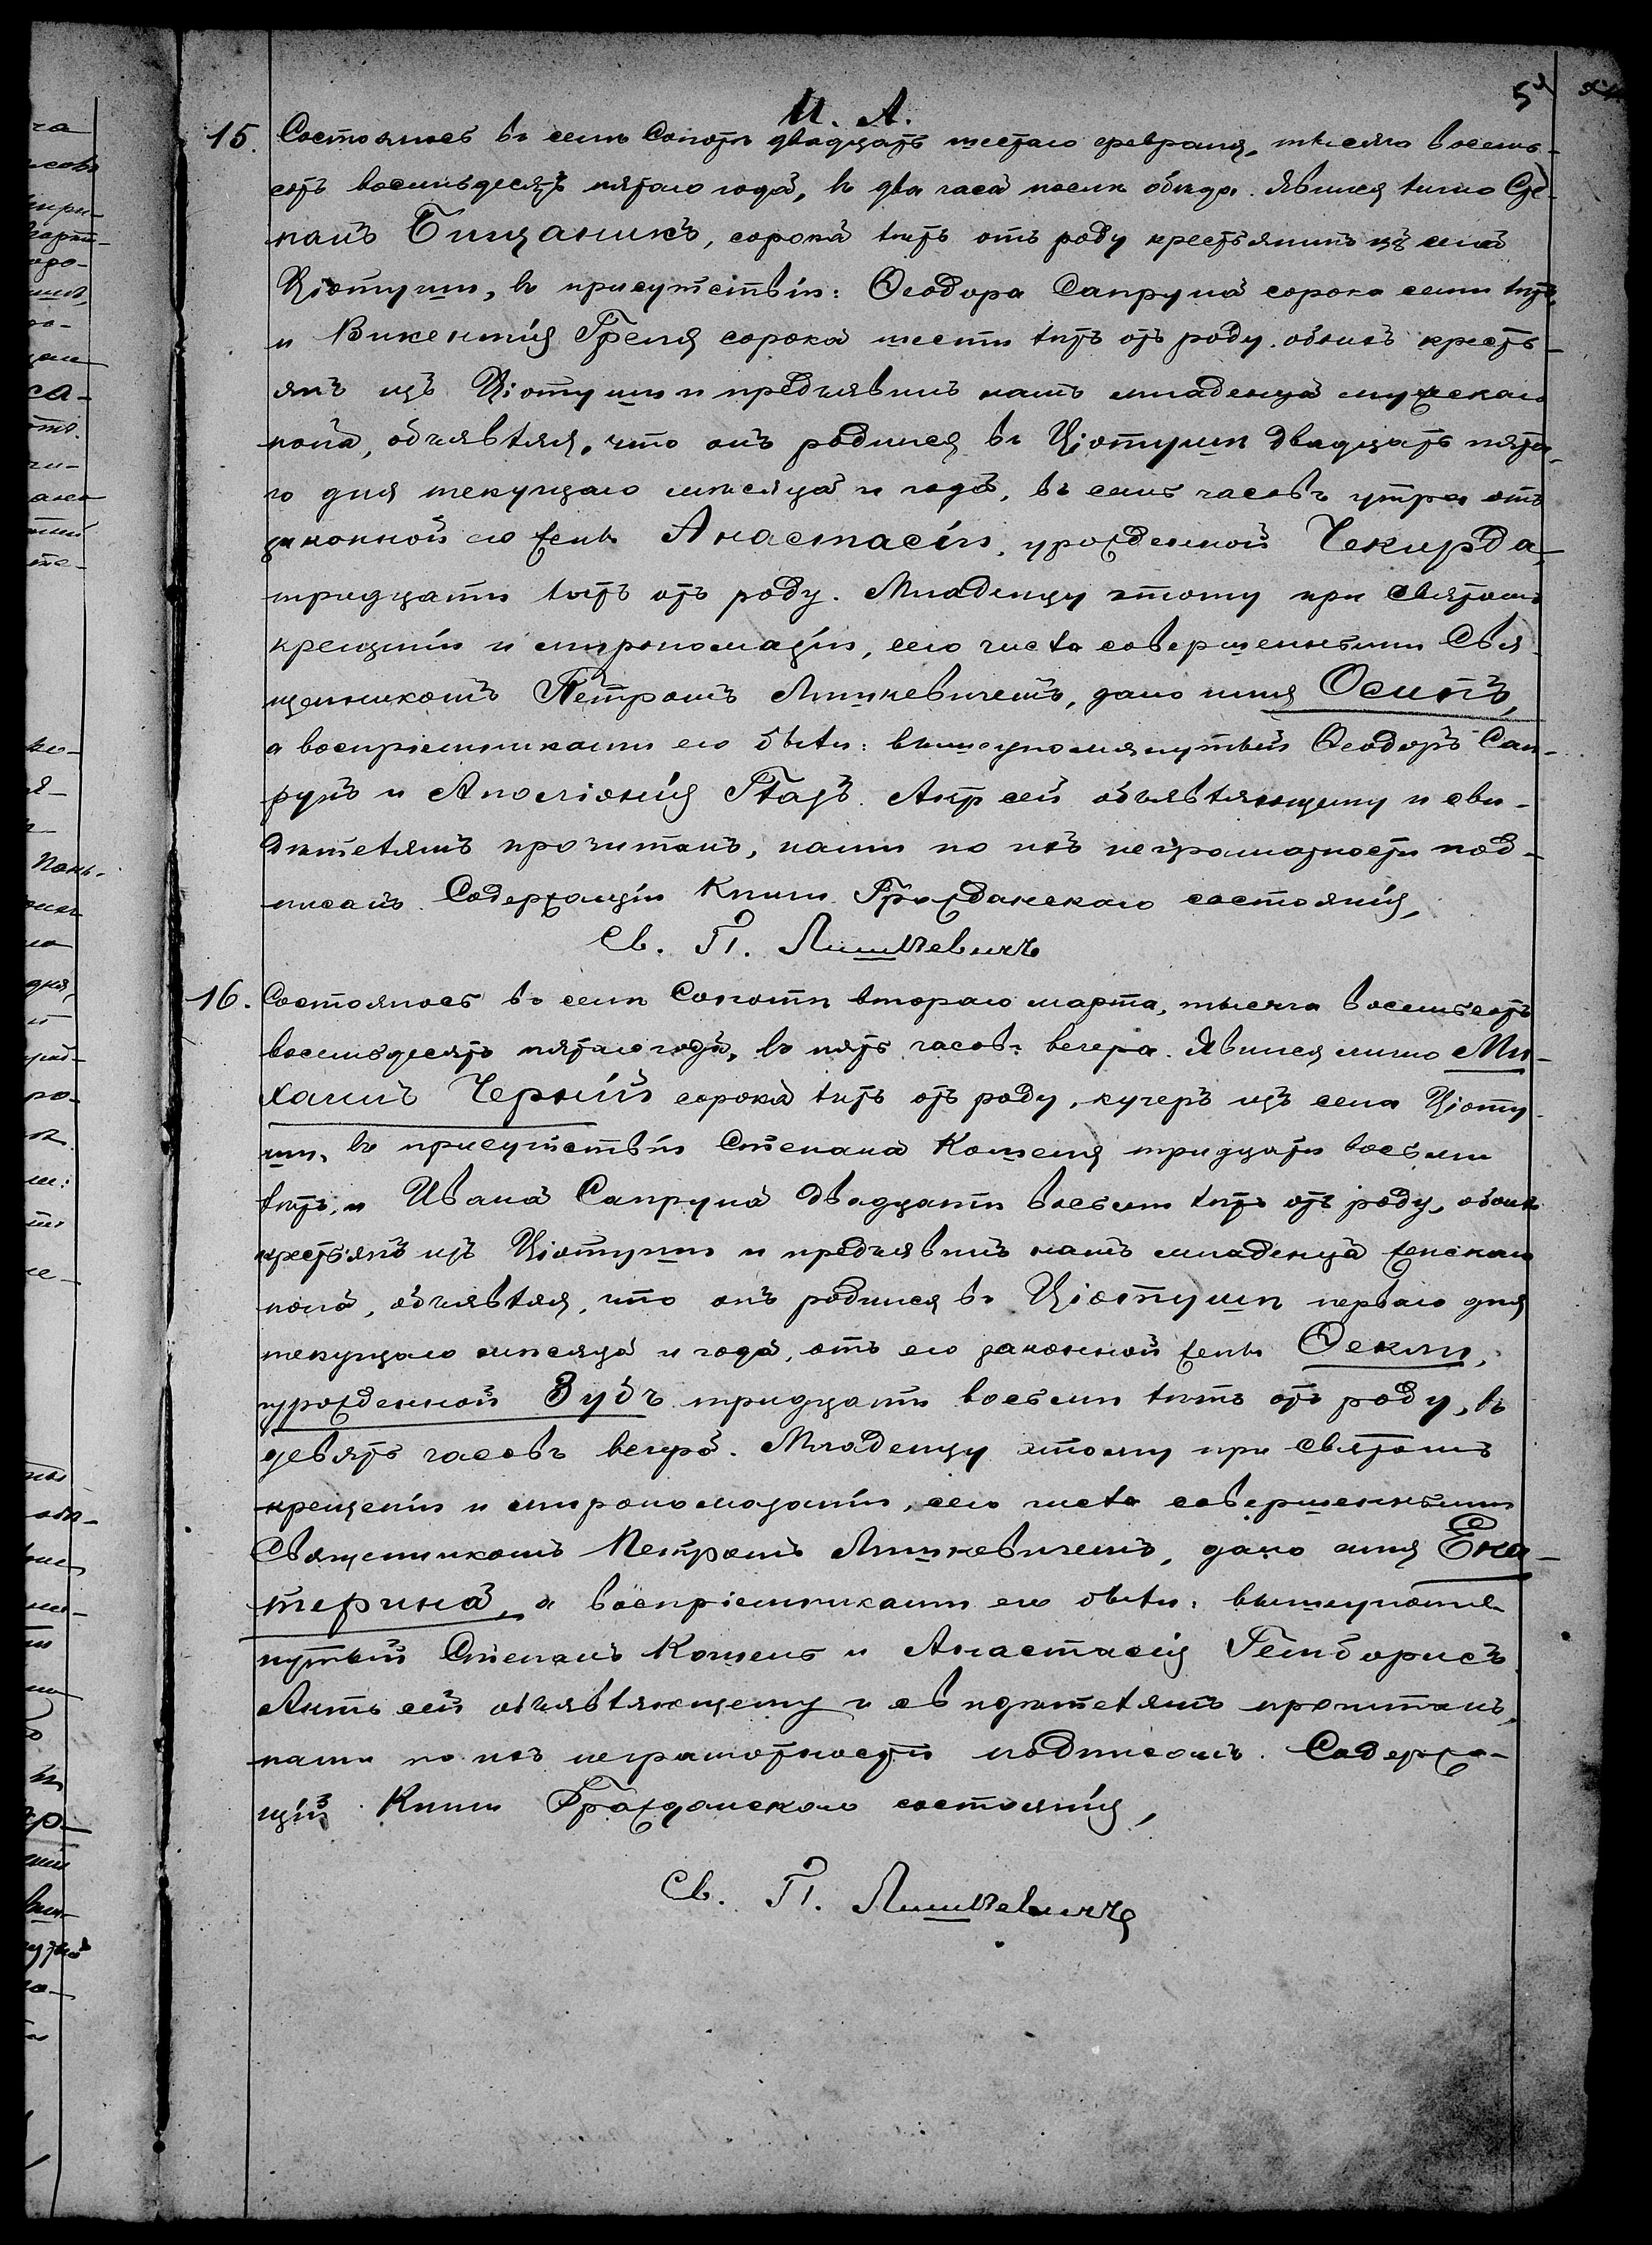 И. А.
5
15. Состоялось въ селѣ Сопоть двадцать шестаго февраля, тысяча восемь-
сотъ восемьдесятъ пятаго года, въ два часа послѣ обѣда. Явился лично Сте-
панъ Бищаникъ, сорока лѣтъ отъ роду крестьянинъ изъ села
Ціотуши, въ присутствіи: Ѳеодора Сапруна сорока семи лѣтъ,
и Викентія Греля сорока шести лѣтъ отъ роду, обоихъ кресть-
янъ изъ Ціотуши и предъявилъ намъ младенца мужескаго
пола, объявляя, что онъ родился въ Ціотуши двадцать пята-
го дня текущаго мѣсяца и года, въ семь часовъ утра отъ
законной его жены Анастасіи, урожденной Чекирда,
тридцати лѣтъ отъ роду. Младенцу этому при Святомъ
крещеніи и миропомазаніи, сего числа совершенными Свя-
щенникомъ Петромъ Лишкевичемъ, дано имя Осипъ,
а воспріемниками его были: вышеупомянутый Ѳеодоръ Сап-
рунъ и Аполіонія Пазъ. Актъ сей объявляющему и сви-
дѣтелямъ прочитанъ, нами по ихъ неграмотности под-
писанъ. Содержащій Книги Гражданскаго состоянія,
Св. П. Лишкевичъ
16. Состоялось въ селѣ Сопоть втораго марта, тысяча восемьсотъ
восемьдесятъ пятаго года, въ пять часовъ вечера. Явился лично Ми-
хаилъ Черній сорока лѣтъ отъ роду, кучеръ изъ села Ціоту-
ши, въ присутствіи Степана Кошеля тридцати восьми
лѣтъ, и Ивана Сапруна двадцати восьми лѣтъ отъ роду, обоихъ
крестьянъ изъ Ціотуши и предъявилъ намъ младенца женскаго
пола, объявляя, что онъ родился въ Ціотуши перваго дня
текущаго мѣсяца и года, отъ его законной жены Ѳеклы,
урожденной Зубъ тридцати восьми лѣтъ отъ роду, въ
девять часовъ вечера. Младенцу этому при Святомъ
крещеніи и миропомазаніи, сего числа совершенными
Священникомъ Петромъ Лишкевичемъ, дано имя Ека-
терина, а воспріемниками его были: вышеупомя-
нутый Степанъ Кошель и Анастасія Гемборисъ.
Актъ сей объявляющему и свидѣтелямъ прочитанъ,
нами по ихъ неграмотности подписанъ. Содержа-
щій Книги Гражданскаго состоянія,
Св. П. Лишкевичъ